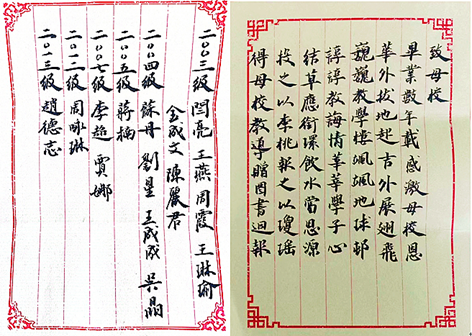 致母校
畢業數年載感激母校恩
華外拔地起吉外展翅飛
巍巍教學樓颯颯地球邨
諄諄教誨情莘莘學子心
結草應銜環飲水當思源
投之以李桃報之以瓊瑤
得母校教導贈圖書迴報
二〇〇三級 閆亮 王燕 周霞 王琳瑜
金成文 陳麗君
二〇〇四級 蘇丹 劉昱 王成成 吳晶
二〇〇五級 蔣楠
二〇〇七級 李超 賈娜
二〇一二級 周咏琳
二〇一三級 趙德志